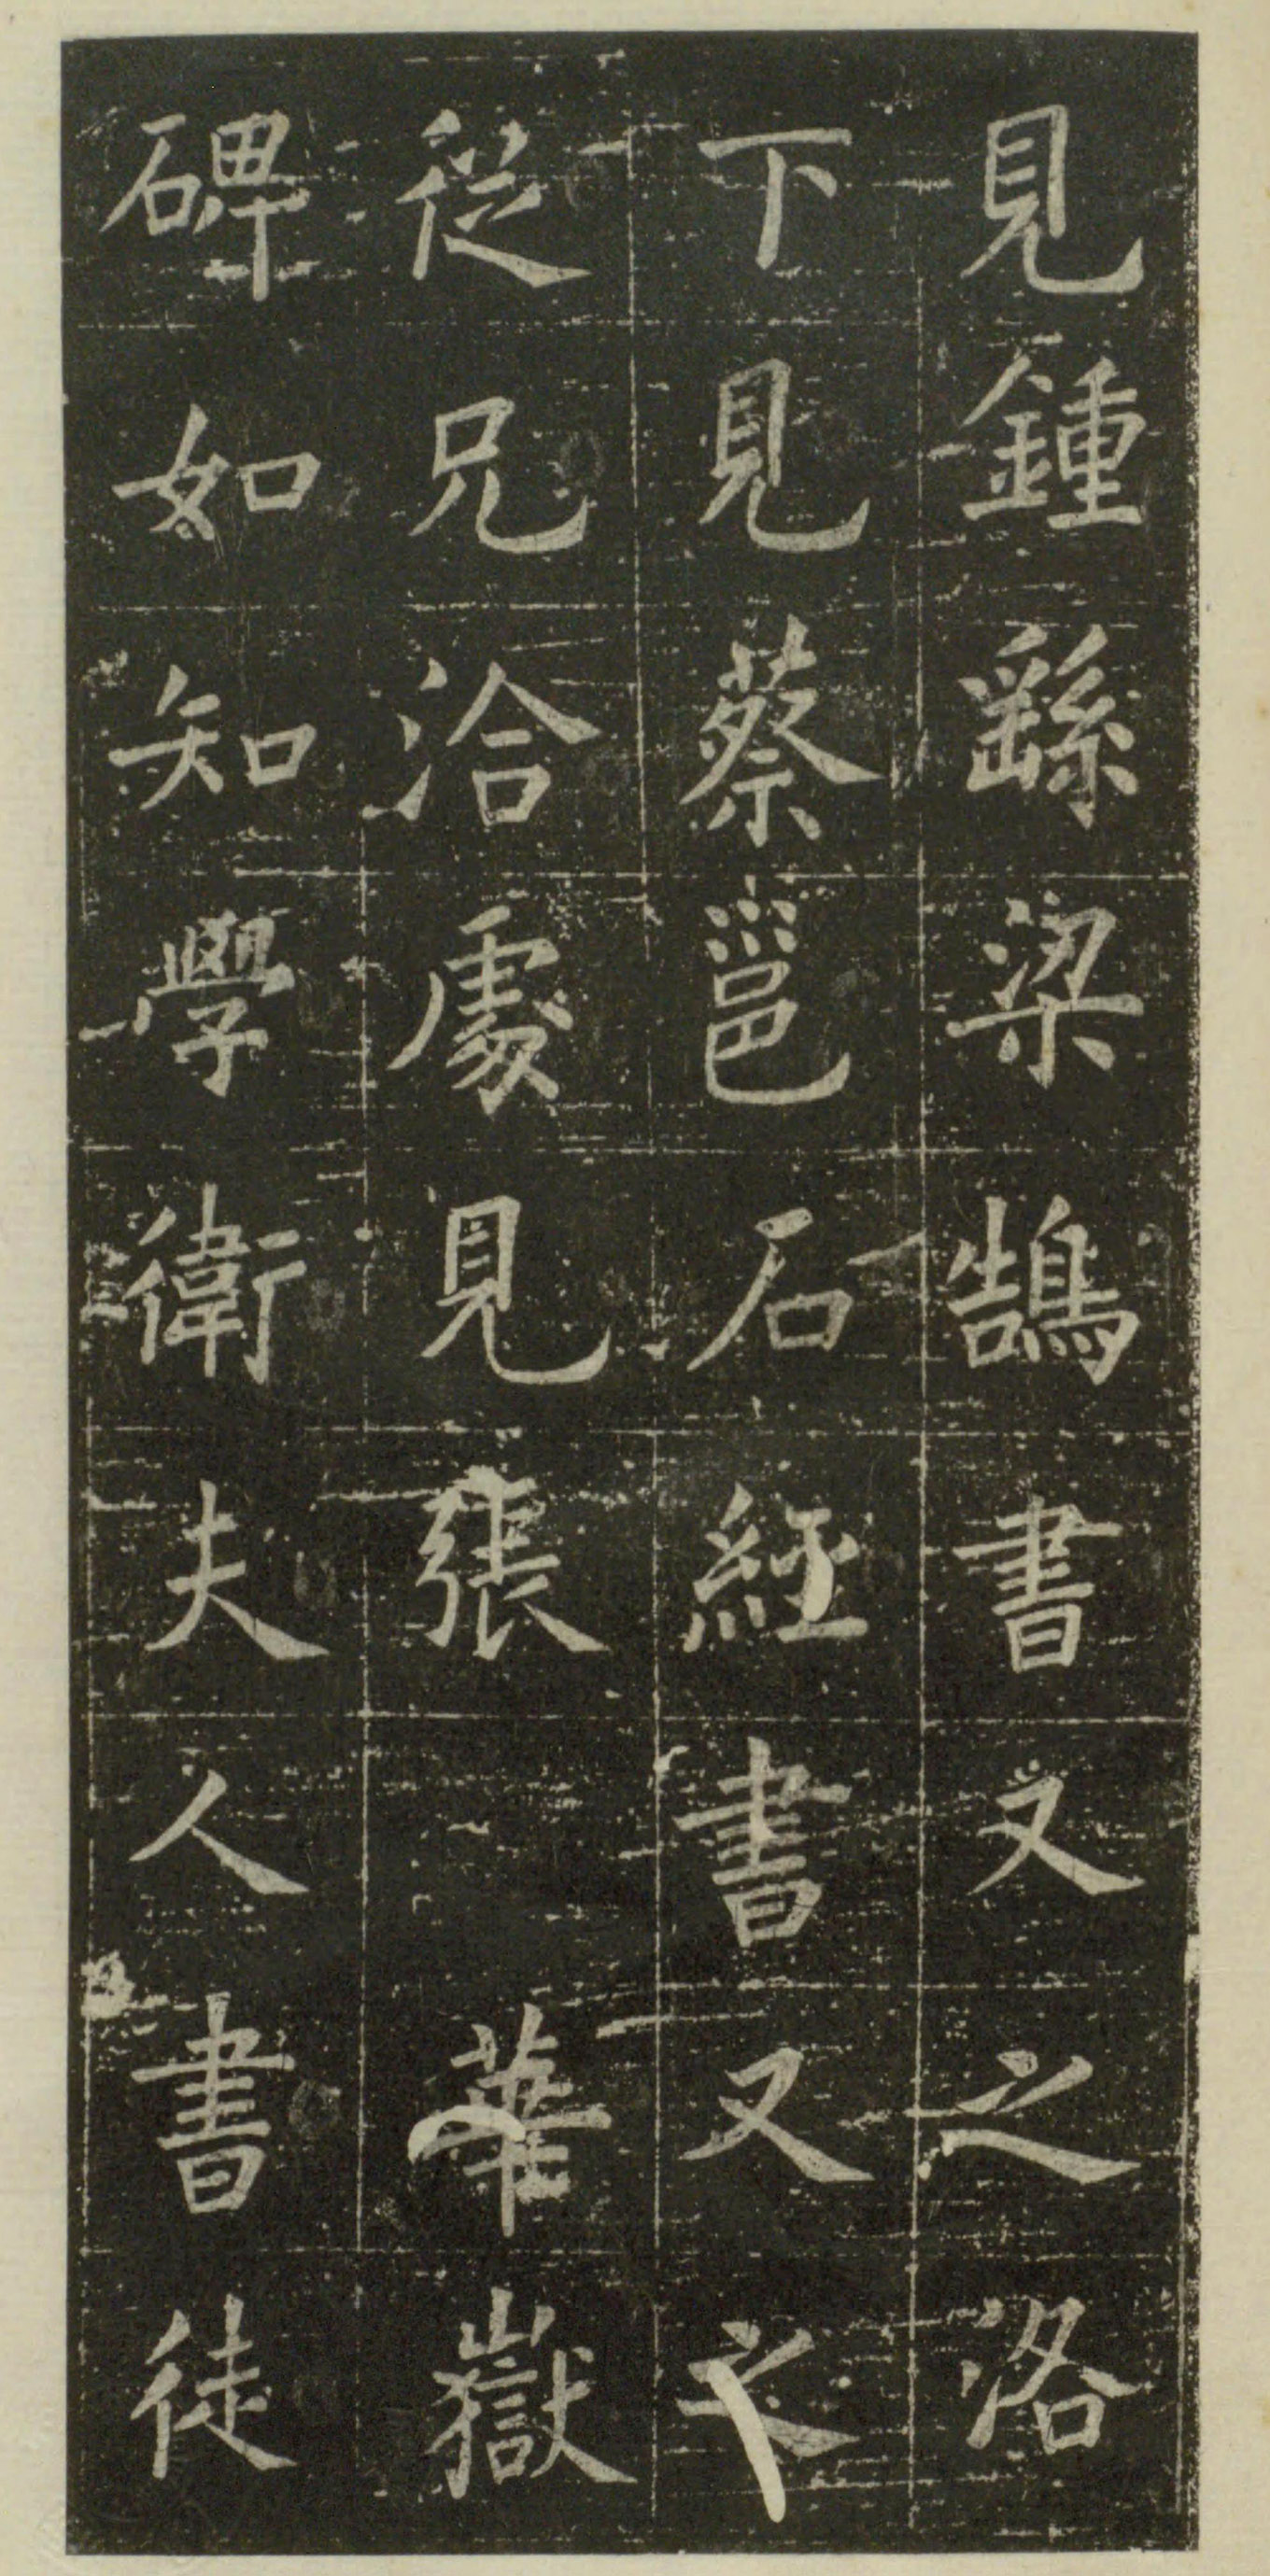 見鍾繇梁鵠書又之洛
下見蔡邕石經書又之
從兄洽處見張華嶽
碑如知學衛夫人書徒